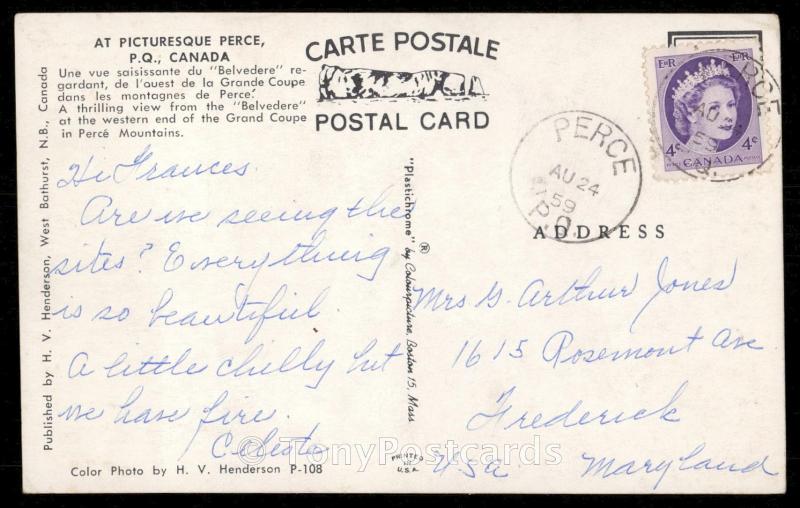 AT PICTURESQUE PERCE,
P.Q., CANADA
Une vue saisissante du "Belvedere" re-
gardant, de l'ouest de la Grande Coupe
dans les montagnes de Percé.
A thrilling view from the "Belvedere"
at the western end of the Grand Coupe
in Percé Mountains.
CARTE POSTALE
POSTAL CARD
Hi Frances.
Are we seeing the
sites? Everything
is so beautiful
A little chilly but
we have fire.
Celeste
Color Photo by H. V. Henderson P-108
Published by H. V. Henderson, West Bathurst, N.B., Canada
"Plastichrome" ® by Colourpicture, Boston 15, Mass
PRINTED
IN
U.S.A.
PERCE
AU 24
59
P.Q.
E R
E R
4c
4c
CANADA
PERCE
AU
59
P.Q.
ADDRESS
Mrs G. Arthur Jones
1615 Rosemont Ave
Frederick
USA Maryland
© TonyPostcards